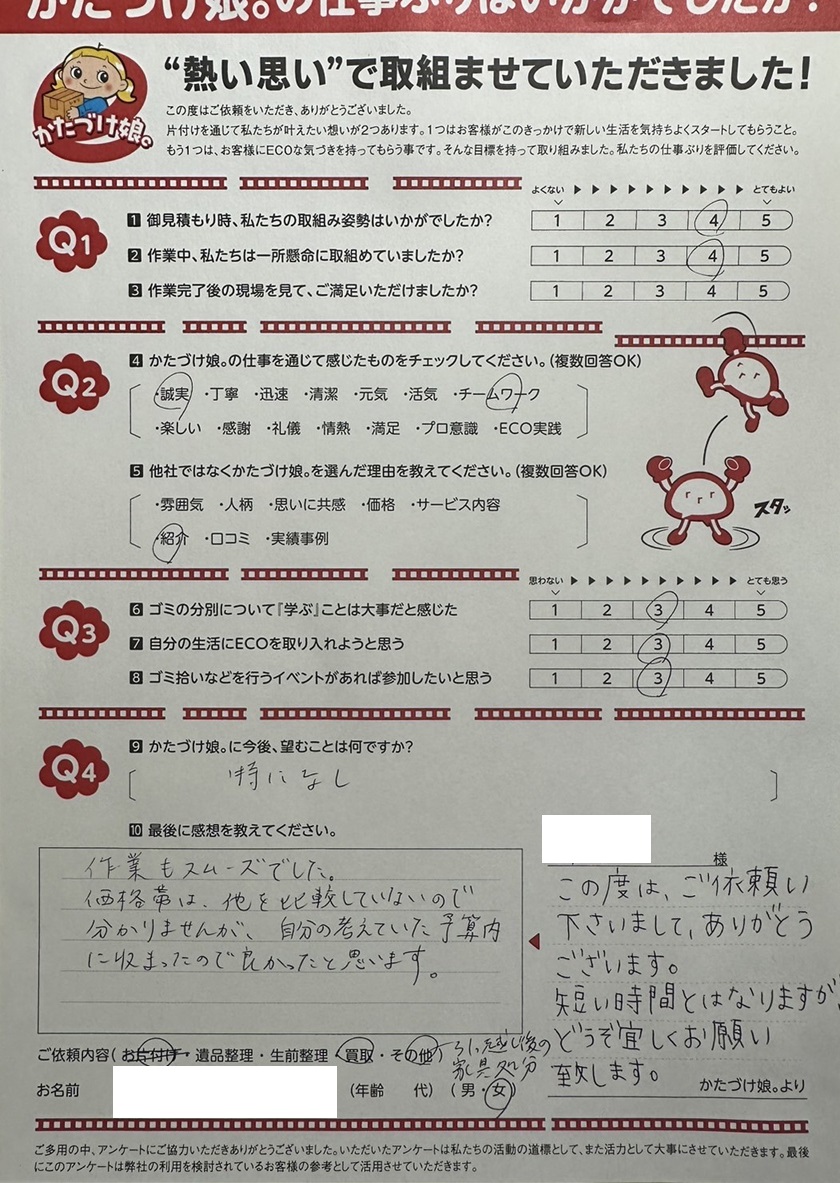 かたづけ娘。の仕事ぶりはいかがでしたか?
かたづけ娘。
“熱い思い”で取組ませていただきました!
この度はご依頼をいただき、ありがとうございました。
片付けを通じて私たちが叶えたい想いが2つあります。1つはお客様がこのきっかけで新しい生活を気持ちよくスタートしてもらうこと。
もう1つは、お客様にECOな気づきを持ってもらう事です。そんな目標を持って取り組みました。私たちの仕事ぶりを評価してください。
よくない ▶ ▶ ▶ ▶ ▶ ▶ ▶ ▶ ▶ ▶ とてもよい
Q1
1 御見積もり時、私たちの取組み姿勢はいかがでしたか? 1 2 3 4 5
2 作業中、私たちは一所懸命に取組めていましたか? 1 2 3 4 5
3 作業完了後の現場を見て、ご満足いただけましたか? 1 2 3 4 5
Q2
4 かたづけ娘。の仕事を通じて感じたものをチェックしてください。(複数回答OK)
・誠実 ・丁寧 ・迅速 ・清潔 ・元気 ・活気 ・チームワーク
・楽しい ・感謝 ・礼儀 ・情熱 ・満足 ・プロ意識 ・ECO実践
5 他社ではなくかたづけ娘。を選んだ理由を教えてください。(複数回答OK)
・雰囲気 ・人柄 ・思いに共感 ・価格 ・サービス内容
スタッ
・紹介 ・口コミ ・実績事例
思わない ▶ ▶ ▶ ▶ ▶ ▶ ▶ ▶ ▶ ▶ とても思う
Q3
6 ゴミの分別について『学ぶ』ことは大事だと感じた 1 2 3 4 5
7 自分の生活にECOを取り入れようと思う 1 2 3 4 5
8 ゴミ拾いなどを行うイベントがあれば参加したいと思う 1 2 3 4 5
Q4
9 かたづけ娘。に今後、望むことは何ですか?
特になし
10 最後に感想を教えてください。
作業もスムーズでした。
価格帯は、他を比較していないので
分かりませんが、自分の考えていた予算内
に収まったので良かったと思います。
様
この度は、ご依頼い
下さいまして、ありがとう
ございます。
短い時間とはなりますが、
どうぞ宜しくお願い
致します。
かたづけ娘。より
ご依頼内容(お片付け・遺品整理・生前整理・買取・その他)
引っ越し後の
家具処分
お名前 (年齢 代) (男・女)
ご多用の中、アンケートにご協力いただきありがとうございました。いただいたアンケートは私たちの活動の道標として、また活力として大事にさせていただきます。最後
にこのアンケートは弊社の利用を検討されているお客様の参考として活用させていただきます。